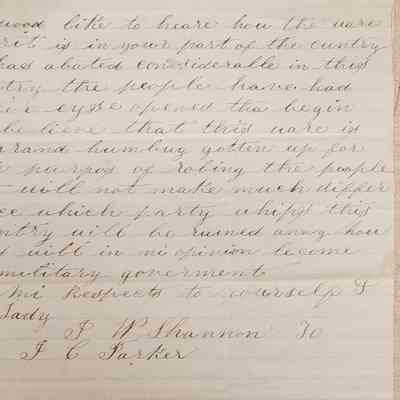 wood like to heare hou the uare
rit is in your part of the cuntry
has abated considerable in this
ntry the people have had
eir eyse opened tha begin
beleave that this uare is
grand humbug gotten up for
purpos of robing the people
will not make much differ
ce which party whips this
ntry will be ruined anny hou
d will in mi opinion become
military goverment
mi Respects to yourself &
Lady
J W Shannon To
J C Parker